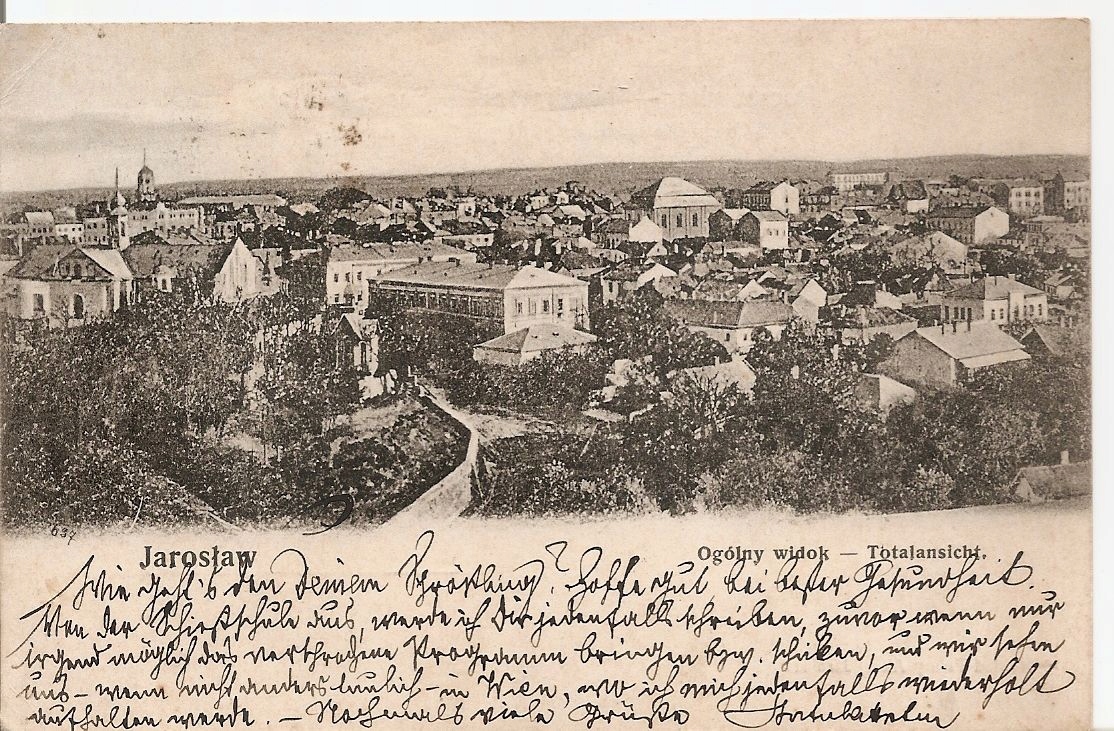 637
Jarosław
Ogólny widok — Totalansicht.
Wie geht's den Deinem Sprößling? Hoffe gut bei bester Gesundheit.
Von der Schießschule aus, werde ich Dir jedenfalls schreiben, zuvor wenn nur
irgend möglich das versprochene Programm bringen bzw. schicken, und wir sehen
uns – wenn nicht anders – in Wien, wo ich mich jedenfalls wiederholt
aufhalten werde. – Nochmals viele Grüße